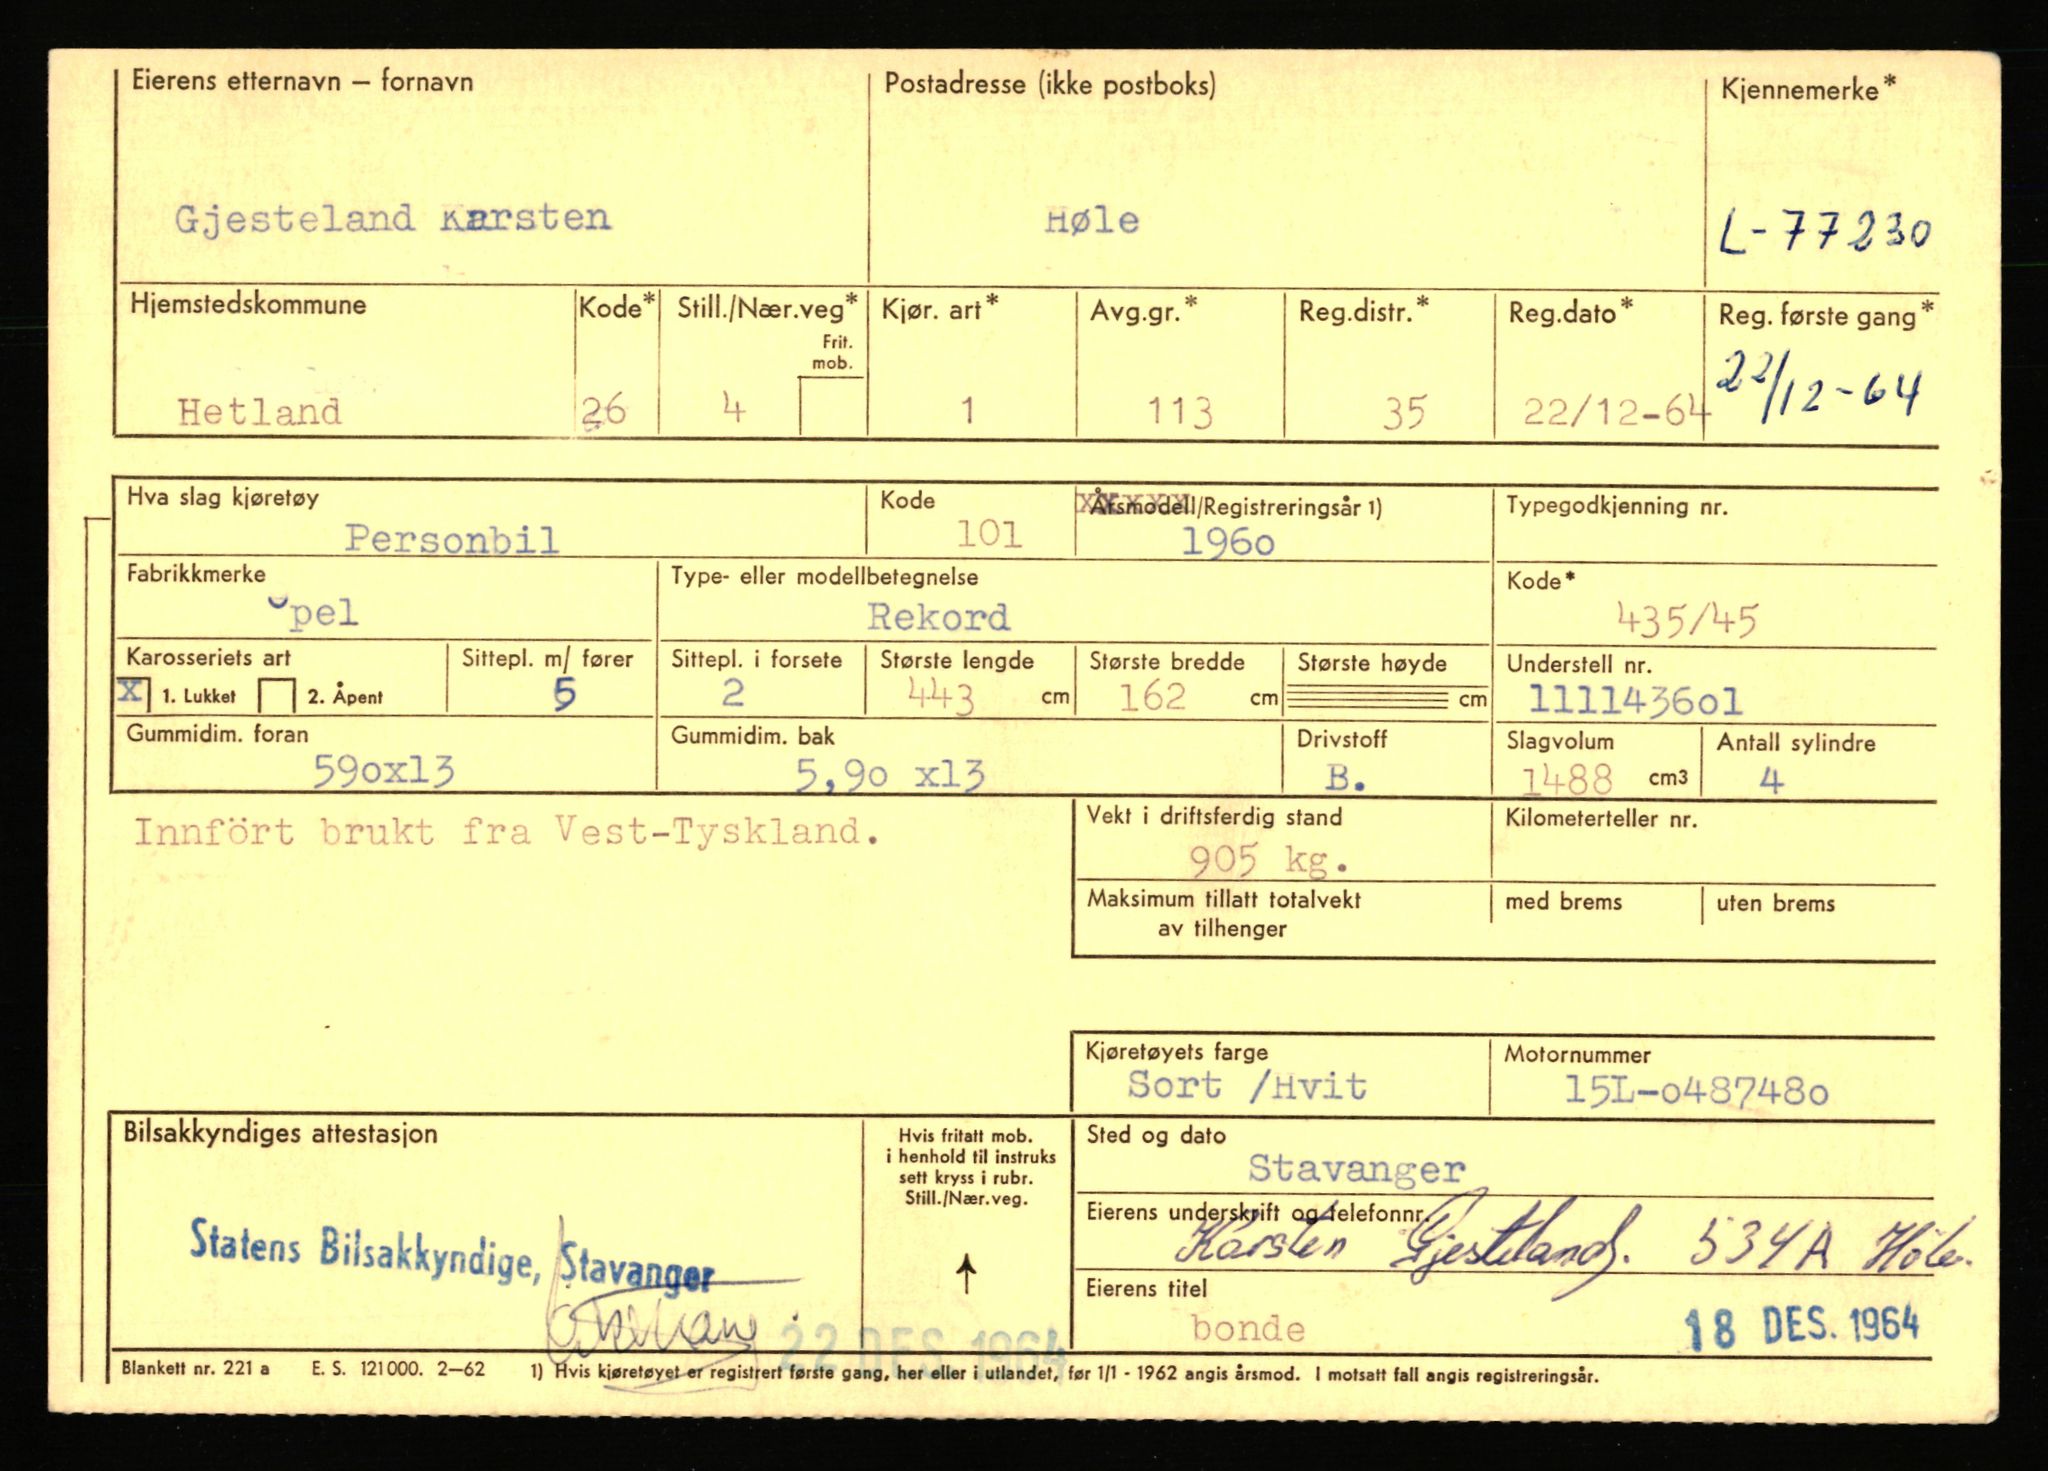 Eierens etternavn – fornavn Postadresse (ikke postboks) Kjennemerke*
Gjesteland Karsten Høle L-77230
Hjemstedskommune Kode* Still./Nær.veg* Kjør. art* Avg.gr.* Reg.distr.* Reg.dato* Reg. første gang*
Frit.
mob.
Hetland 26 4 1 113 35 22/12-64 22/12-64
Hva slag kjøretøy Kode Årsmodell/Registreringsår 1) Typegodkjenning nr.
Personbil 101 196o
Fabrikkmerke Type- eller modellbetegnelse Kode*
Opel Rekord 435/45
Karosseriets art Sittepl. m/ fører Sittepl. i forsete Største lengde Største bredde Største høyde Understell nr.
X 1. Lukket 2. Åpent 5 2 443 cm 162 cm cm 1111436o1
Gummidim. foran Gummidim. bak Drivstoff Slagvolum Antall sylindre
59ox13 5,9o x13 B. 1488 cm3 4
Innfört brukt fra Vest-Tyskland.
Vekt i driftsferdig stand Kilometerteller nr.
905 kg.
Maksimum tillatt totalvekt med brems uten brems
av tilhenger
Kjøretøyets farge Motornummer
Sort /Hvit 15L-o48748o
Bilsakkyndiges attestasjon
Hvis fritatt mob.
i henhold til instruks
sett kryss i rubr.
Still./Nær.veg.
Sted og dato
Stavanger
Eierens underskrift og telefonnr.
Karsten Gjesteland. 534A Höle.
Statens Bilsakkyndige, Stavanger
Eierens titel
bonde 18 DES. 1964
22 DES. 1964
Blankett nr. 221 a E. S. 121000. 2–62 1) Hvis kjøretøyet er registrert første gang, her eller i utlandet, før 1/1 - 1962 angis årsmod. I motsatt fall angis registreringsår.